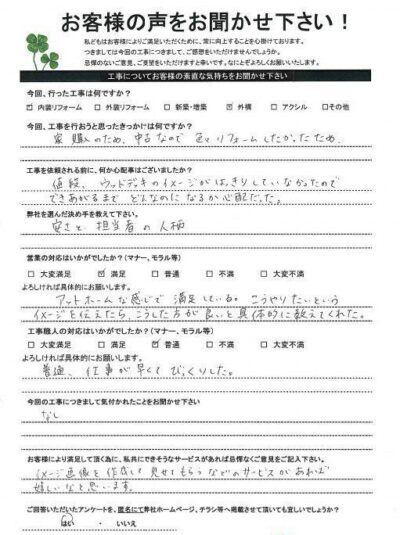 お客様の声をお聞かせ下さい！
私どもはお客様によりご満足いただくために、常に向上することを心掛けております。
つきましては今回の工事について、ご感想をいただけませんでしょうか。
忌憚のないご意見、ご要望をいただけますと幸いです。なにとぞよろしくお願いいたします。
工事についてお客様の素直な気持ちをお聞かせ下さい
今回、行った工事は何ですか？
☑ 内装リフォーム □ 外装リフォーム □ 新築・増築 ☑ 外構 □ アクシル □その他
今回、工事を行おうと思ったきっかけは何ですか？
家購入のため、中古なので色々リフォームしたかったため。
工事を依頼される前に、何か心配事はございましたか？
値段、ウッドデッキのイメージがはっきりしていなかったので
できあがるまでどんなのになるか心配だった。
弊社を選んだ決め手を教えて下さい。
安さと担当者の人柄
営業の対応はいかがでしたか？（マナー、モラル等）
□ 大変満足 ☑ 満足 □ 普通 □ 不満 □ 大変不満
よろしければ具体的にお願いします。
アットホームな感じで満足している。こうやりたいという
イメージを伝えたら、こうした方が良いと具体的に教えてくれた。
工事職人の対応はいかがでしたか？（マナー、モラル等）
□ 大変満足 □ 満足 ☑ 普通 □ 不満 □ 大変不満
よろしければ具体的にお願いします。
普通、仕事が早くてびっくりした。
今回の工事につきまして気付かれたことをお聞かせ下さい
なし
お客様により満足して頂く為に、私共にできそうなサービスがあれば忌憚なくご意見をご記入下さい。
イメージ画像を作成し見せてもらうなどのサービスがあれば
嬉しいなと思います。
ご回答いただいたアンケートを、匿名にて弊社ホームページ、チラシ等へ掲載させて頂いても宜しいでしょうか？
はい ・ いいえ